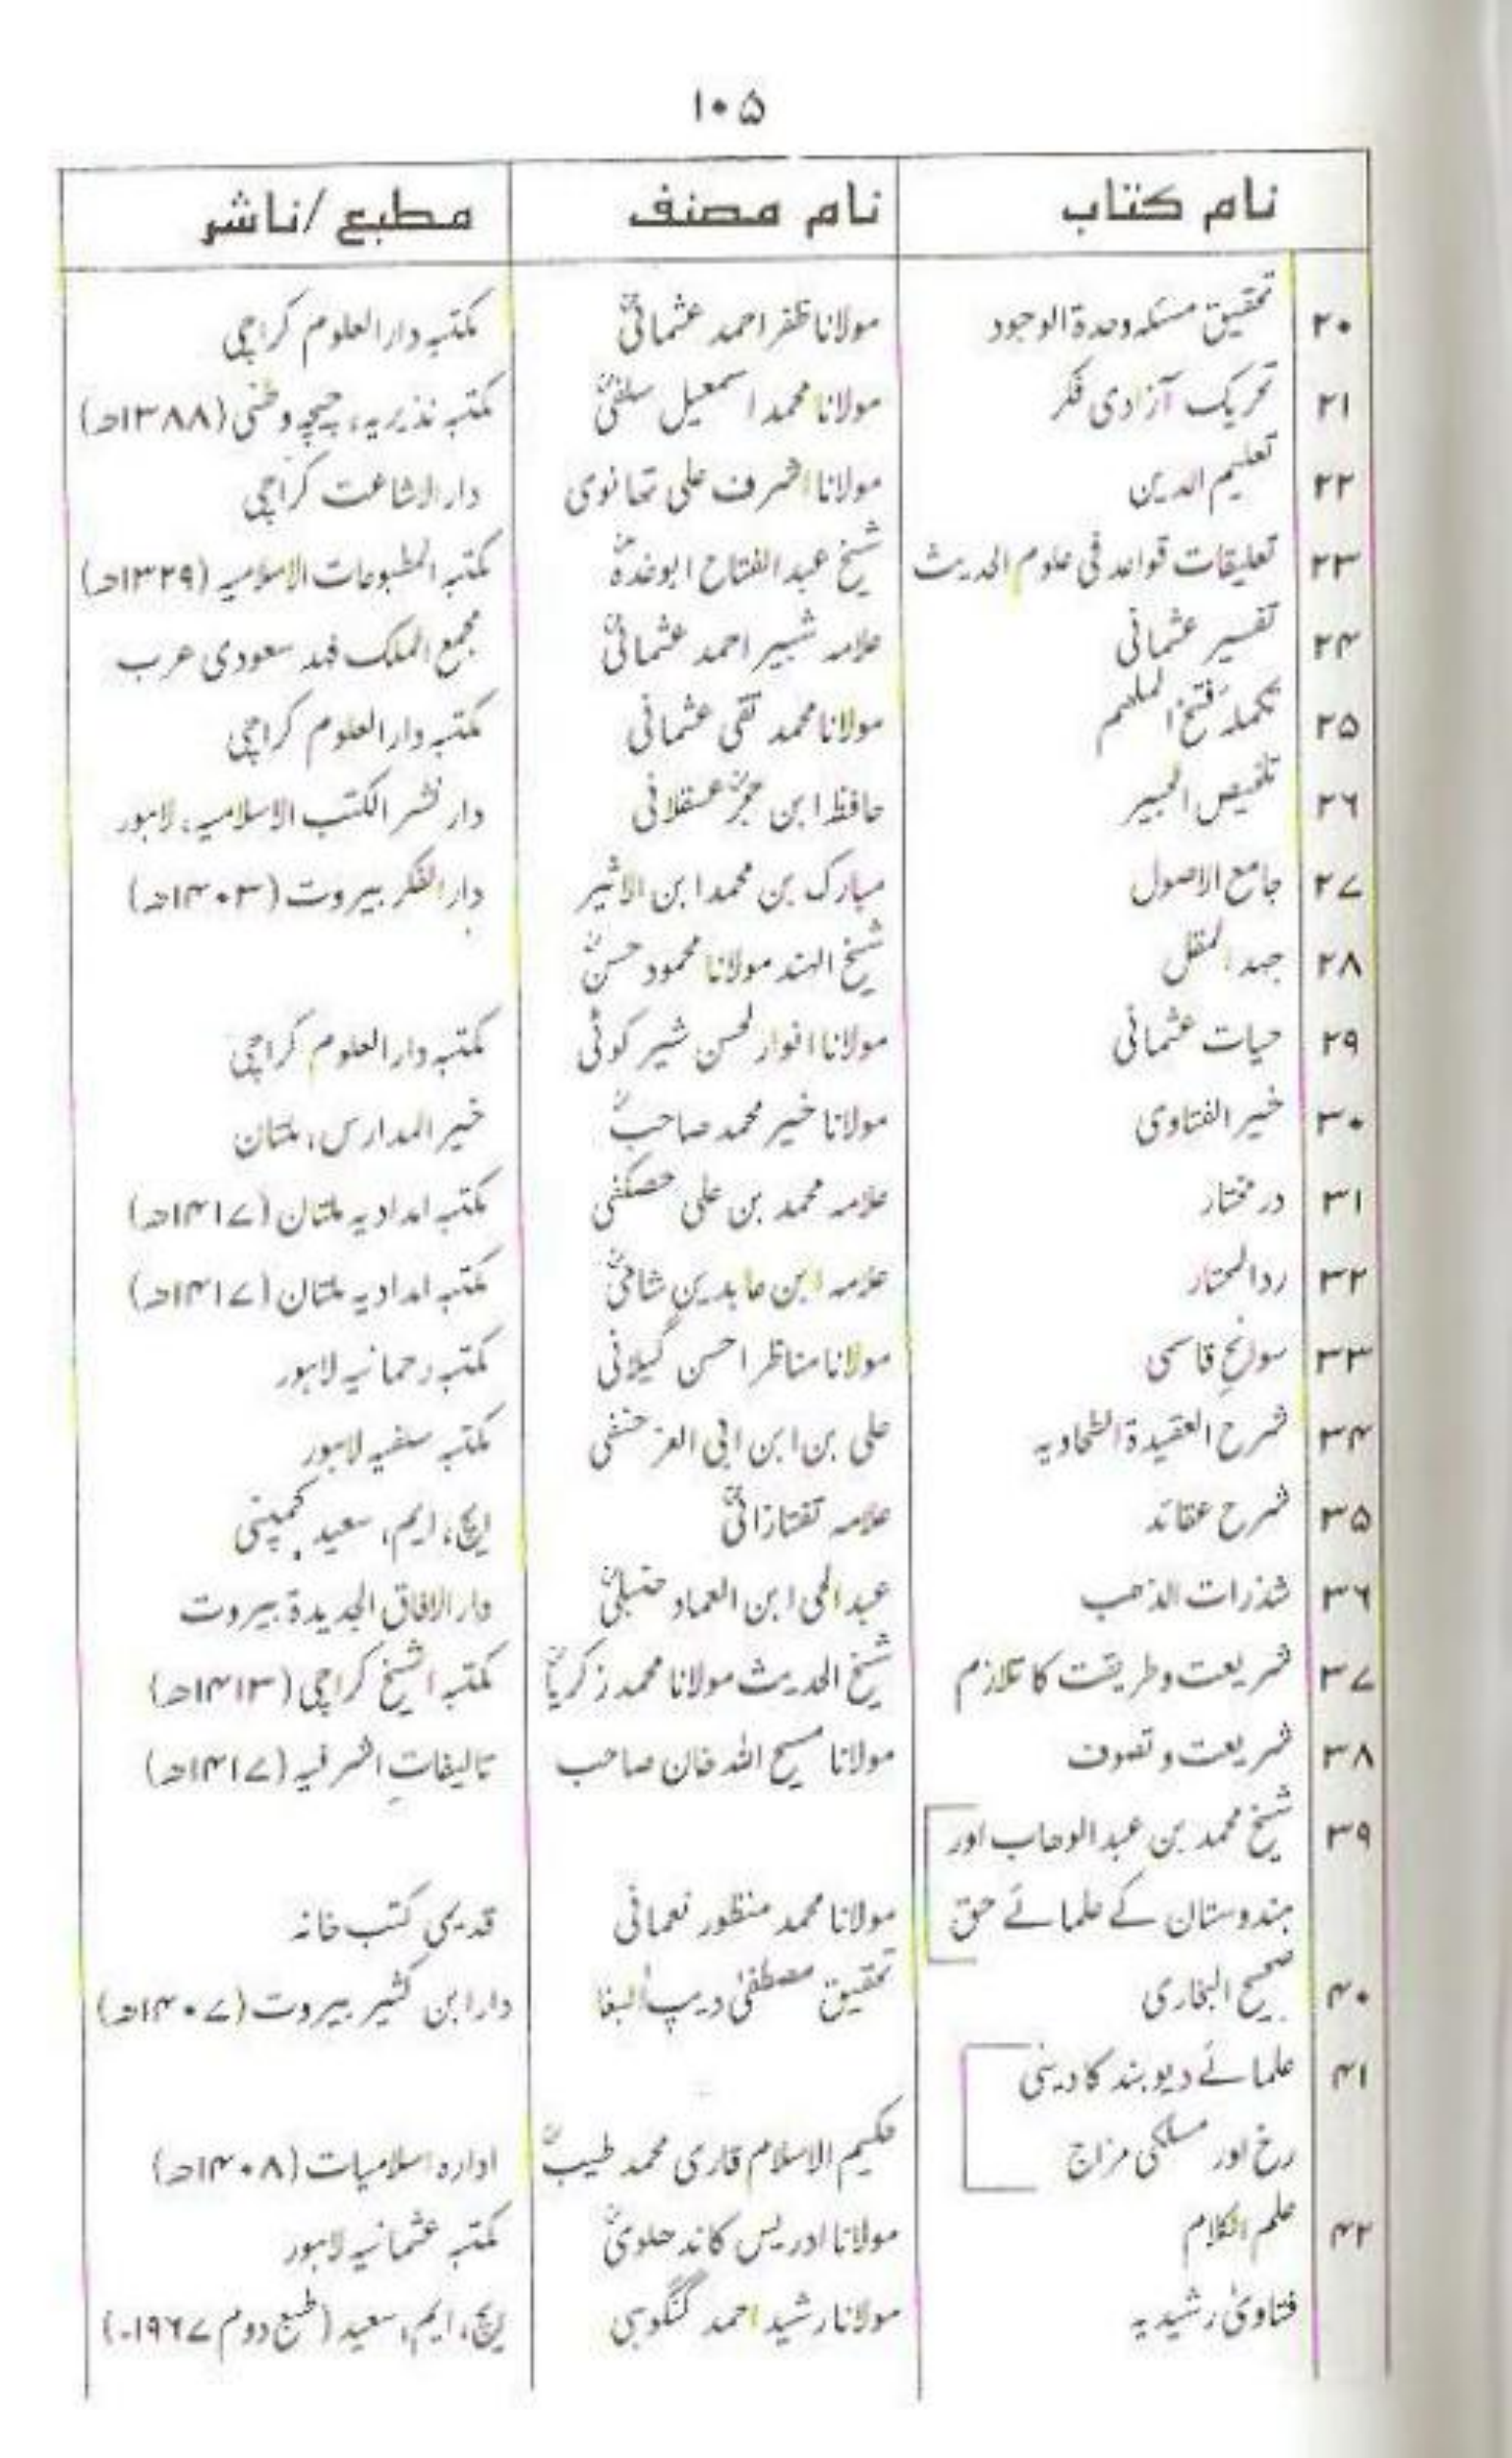 ۱۰۵
نام کتاب نام مصنف مطبع/ناشر
۲۰ تحقیق مسئلہ وحدۃ الوجود مولانا ظفر احمد عثمانیؒ مکتبہ دارالعلوم کراچی
۲۱ تحریک آزادی فکر مولانا محمد اسمعیل سلفیؒ مکتبہ نذیریہ، چیچہ وطنی (۱۳۸۸ھ)
۲۲ تعلیم الدین مولانا اشرف علی تھانوی دارالاشاعت کراچی
۲۳ تعلیقات قواعد فی علوم الحدیث شیخ عبدالفتاح ابوغدہؒ مکتبہ المطبوعات الاسلامیہ (۱۳۲۹ھ)
۲۴ تفسیر عثمانی علامہ شبیر احمد عثمانیؒ مجمع الملک فہد سعودی عرب
۲۵ تکملہ فتح الملہم مولانا محمد تقی عثمانی مکتبہ دارالعلوم کراچی
۲۶ تلخیص الحبیر حافظ ابن حجرؒ عسقلانی دار نشر الکتب الاسلامیہ، لاہور
۲۷ جامع الاصول مبارک بن محمد ابن الاثیر دارالفکر بیروت (۱۴۰۳ھ)
۲۸ جہد المقل شیخ الہند مولانا محمود حسنؒ
۲۹ حیات عثمانی مولانا انوار الحسن شیر کوٹی مکتبہ دارالعلوم کراچی
۳۰ خیر الفتاوی مولانا خیر محمد صاحبؒ خیر المدارس، ملتان
۳۱ در مختار علامہ محمد بن علی حصکفی مکتبہ امدادیہ ملتان (۱۴۱۷ھ)
۳۲ رد المحتار علامہ ابن عابدین شامیؒ مکتبہ امدادیہ ملتان (۱۴۱۷ھ)
۳۳ سوانحِ قاسمی مولانا مناظر احسن گیلانی مکتبہ رحمانیہ لاہور
۳۴ شرح العقیدۃ الطحاویہ علی بن ابن ابی العز حنفی مکتبہ سلفیہ لاہور
۳۵ شرح عقائد علامہ تفتازانیؒ ایچ، ایم، سعید کمپنی
۳۶ شذرات الذھب عبدالحی ابن العماد حنبلیؒ دار الافاق الجدیدۃ بیروت
۳۷ شریعت و طریقت کا تلازم شیخ الحدیث مولانا محمد زکریاؒ مکتبہ الشیخ کراچی (۱۴۱۳ھ)
۳۸ شریعت و تصوف مولانا مسیح اللہ خان صاحب تالیفاتِ اشرفیہ (۱۴۱۷ھ)
۳۹ شیخ محمد بن عبدالوھاب اور
ہندوستان کے علمائے حق مولانا محمد منظور نعمانی قدیمی کتب خانہ
۴۰ صحیح البخاری تحقیق مصطفیٰ دیب البغا دار ابن کثیر بیروت (۱۴۰۷ھ)
۴۱ علمائے دیوبند کا دینی
رخ اور مسلکی مزاج حکیم الاسلام قاری محمد طیبؒ ادارہ اسلامیات (۱۴۰۸ھ)
۴۲ علم الکلام مولانا ادریس کاندھلویؒ مکتبہ عثمانیہ لاہور
فتاویٰ رشیدیہ مولانا رشید احمد گنگوہی ایچ، ایم، سعید (طبع دوم ۱۹۶۷ء)